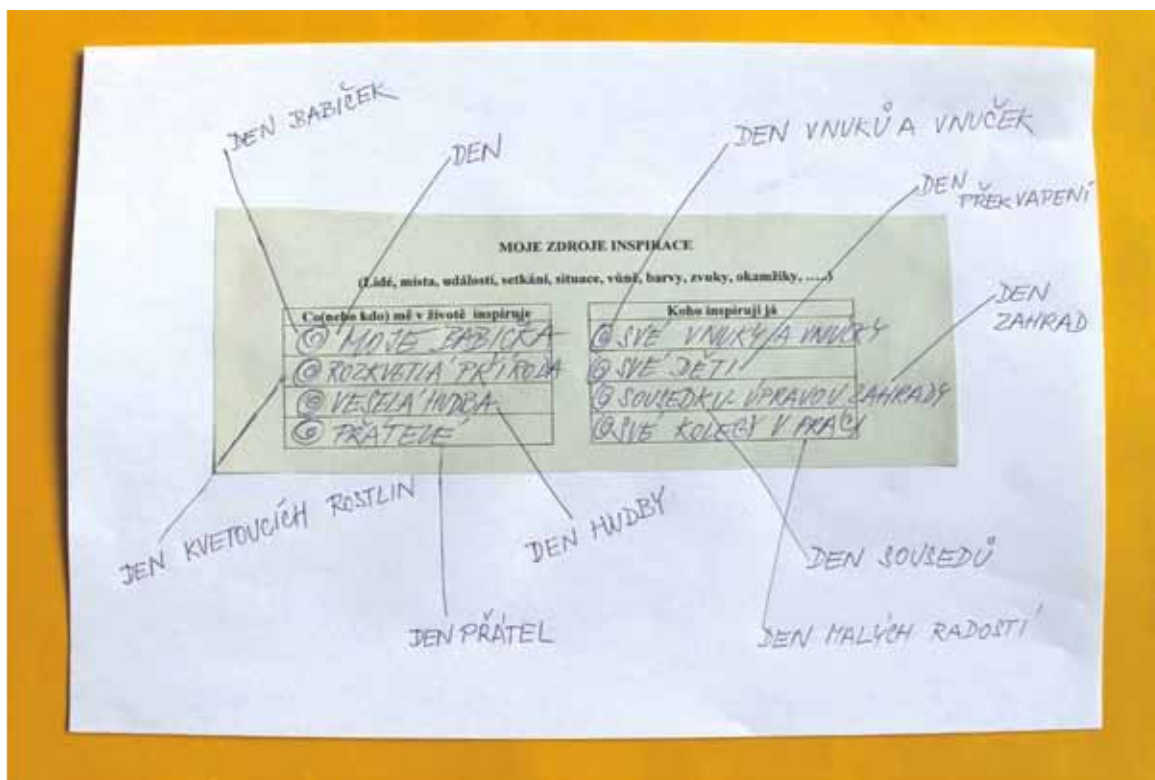 DEN BABIČEK
DEN
DEN VNUKŮ A VNUČEK
DEN
PŘEKVAPENÍ
MOJE ZDROJE INSPIRACE
(Lidé, místa, události, setkání, situace, vůně, barvy, zvuky, okamžiky, .....)
DEN
ZAHRAD
Co(nebo kdo) mě v životě inspiruje
MOJE BABIČKA
ROZKVETLÁ PŘÍRODA
VESELÁ HUDBA
PŘÁTELÉ
Koho inspiruji já
SVÉ VNUKY A VNUČKY
SVÉ DĚTI
SOUSEDKU - ÚPRAVOU ZAHRADY
SVÉ KOLEGY V PRÁCI
DEN KVETOUCÍCH ROSTLIN
DEN HUDBY
DEN SOUSEDŮ
DEN PŘÁTEL
DEN MALÝCH RADOSTÍ